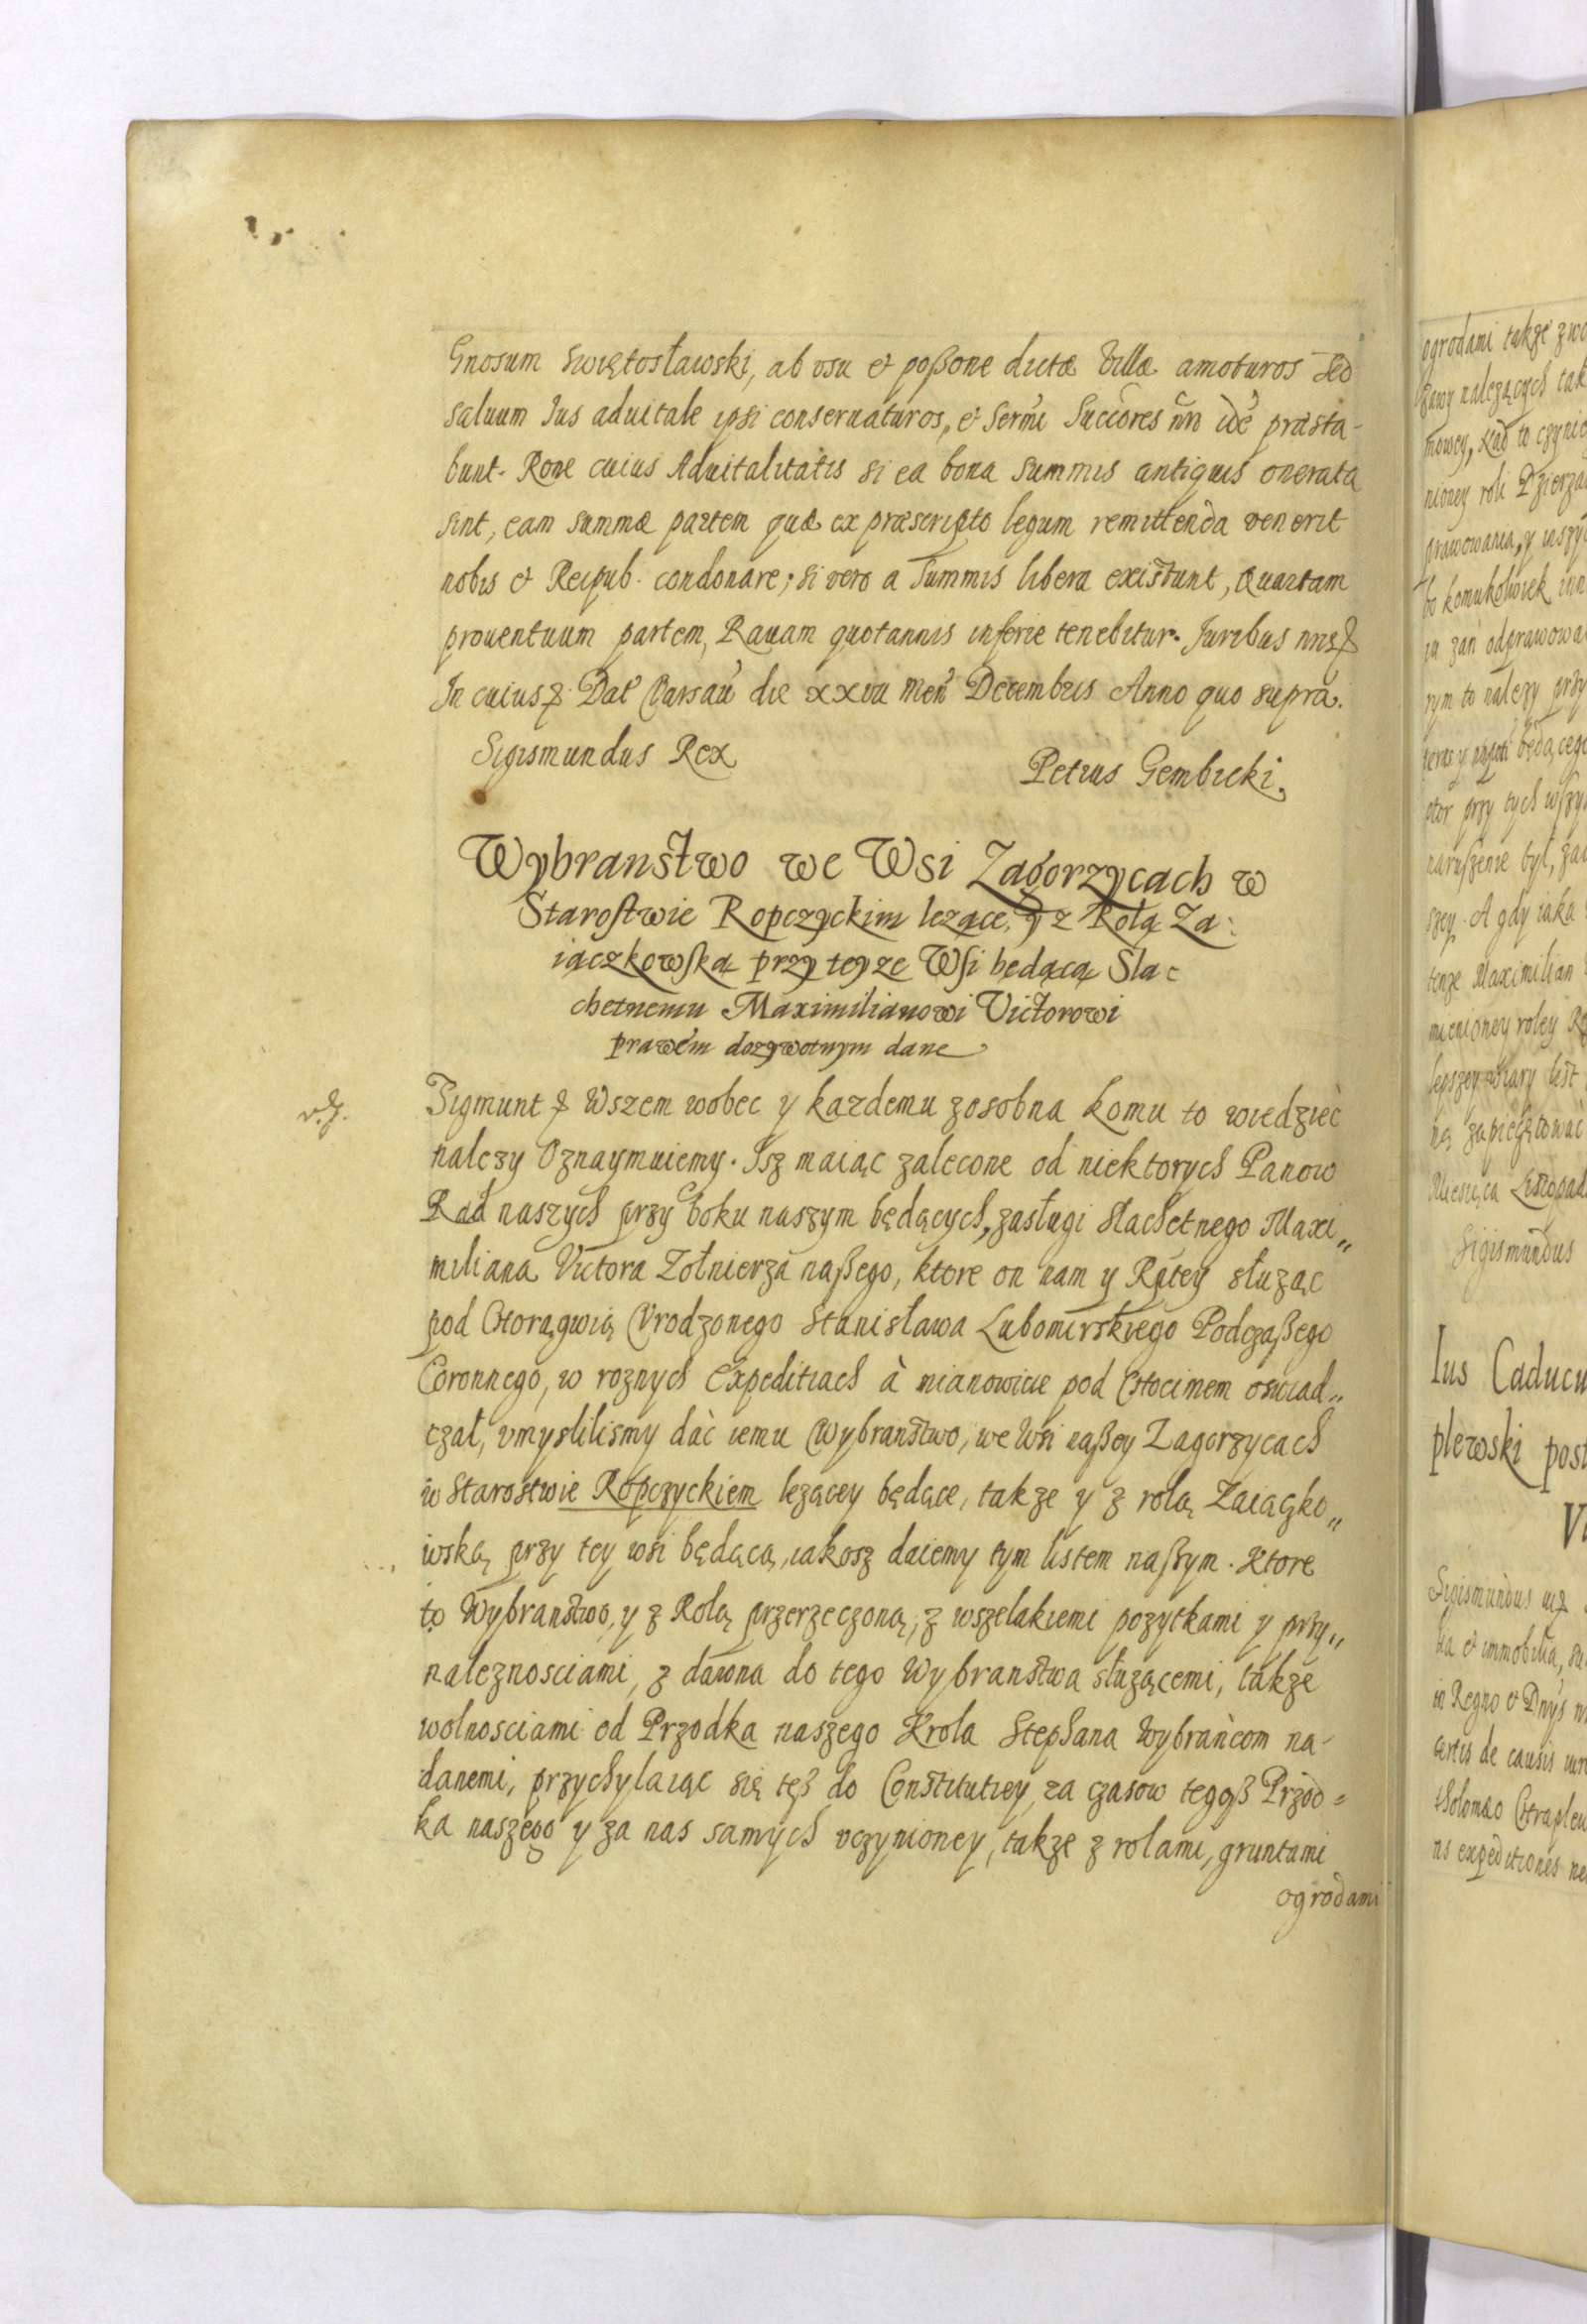 Gnosum Swiętosławski, ab vsu et poßone dictæ Villæ amoturos sed
saluum Ius aduitale ipsi conseruaturos, et Sermi Succores nri idē præsta-
bunt. Rone cuius Aduitalitatis si ea bona summis antiquis onerata
sint, eam summæ partem quæ ex præscripto legum remittenda venerit
nobis et Reipub. condonare; si vero a summis libera existunt, Quartam
prouentuum partem, Rauam quotannis inferre tenebitur. Iuribus nris
In cuius Dat Varsau die xxvii Men Decembris Anno quo supra.
Sigismundus Rex
Petrus Gembicki
Wybranstwo we Wsi Zagorzycach w
Starostwie Ropczyckim lezące, y z Rolą Za:
iączkowską przy teyze Wsi będącą Sla-
chetnemu Maximilianowi Victorowi
prawem dozywotnym dane
Zigmunt Wszem wobec y kazdemu zosobna komu to wiedzieć
nalezy Oznaymuiemy. Isz maiąc zalecone od niektorych Panow
Rad naszych przy boku naszym będących, zasługi slachetnego Maxi„
miliana Victora Zołnierza naßego, ktore on nam y Rptey słuząc
pod Chorągwią Vrodzonego Stanisława Lubomirskiego Podczaßego
Coronnego, w roznych Expeditiach à mianowicie pod Chocimem oswiad„
czał, vmyslilismy dać iemu Wybranstwo, we Wsi naßey Zagorzycach
w Starostwie Ropczyckiem lezącey będące, takze y z rolą Zaiączko„
wską przy tey wsi będącą, iakosz daiemy tym listem naßym. Ktore
to Wybranstwo, y z Rolą przerzeczoną, z wszelakiemi pozytkami y przy„
naleznosciami, z dawna do tego Wybranstwa słuzącemi, takze
wolnosciami od Przodka naszego Krola Stephana Wybrańcom na-
danemi, przychylaiąc się tęß do Constitutiey za czasow tegoß Przod=
ka naszego y za nas samych vczynioney, takze z rolami, gruntami
ogrodami
ogrodami takze zwo
nalezących tak
mowey, kad to czynic
nioney roli Dzierza
prawowania, y inszy
bo komukolwiek inn
ia zan odprawowa
rym to nalezy przy
teras y będącego
przy tych wszy
naruszenie był, za
szey. A gdy iaka
tenze Maximilian
mienioney roley
lepszey wiary list
ną zapieczętować
Miesiąca Listopad
Sigismundus
Ius Caducu
plewski post
Vi
Sigismundus
lia et immobilia, su
in Regno et Dnijs n
certis de causis iur
tholomæo Chraplew
as expeditiones ne